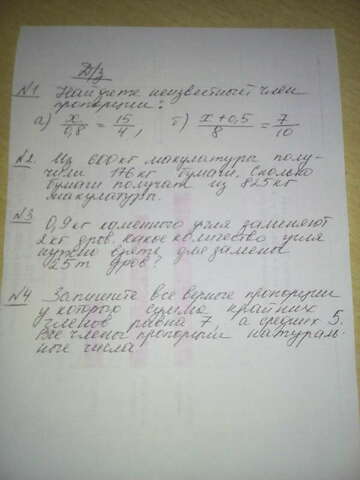 Д/з
№1 Найдите неизвестный член
пропорции:
а) x/0,8 = 15/4, б) x+0,5/8 = 7/10
№2. Из 600 кг макулатуры полу-
чили 176 кг бумаги. Сколько
бумаги получат из 825 кг
макулатуры.
№3 0,9 кг каменного угля заменяют
2 кг дров. Какое количество угля
нужно взять для замены
25 т дров?
№4 Запишите все верные пропорции
у которых сумма крайних
членов равна 7, а средних 5.
Все члены пропорции натураль-
ные числа.